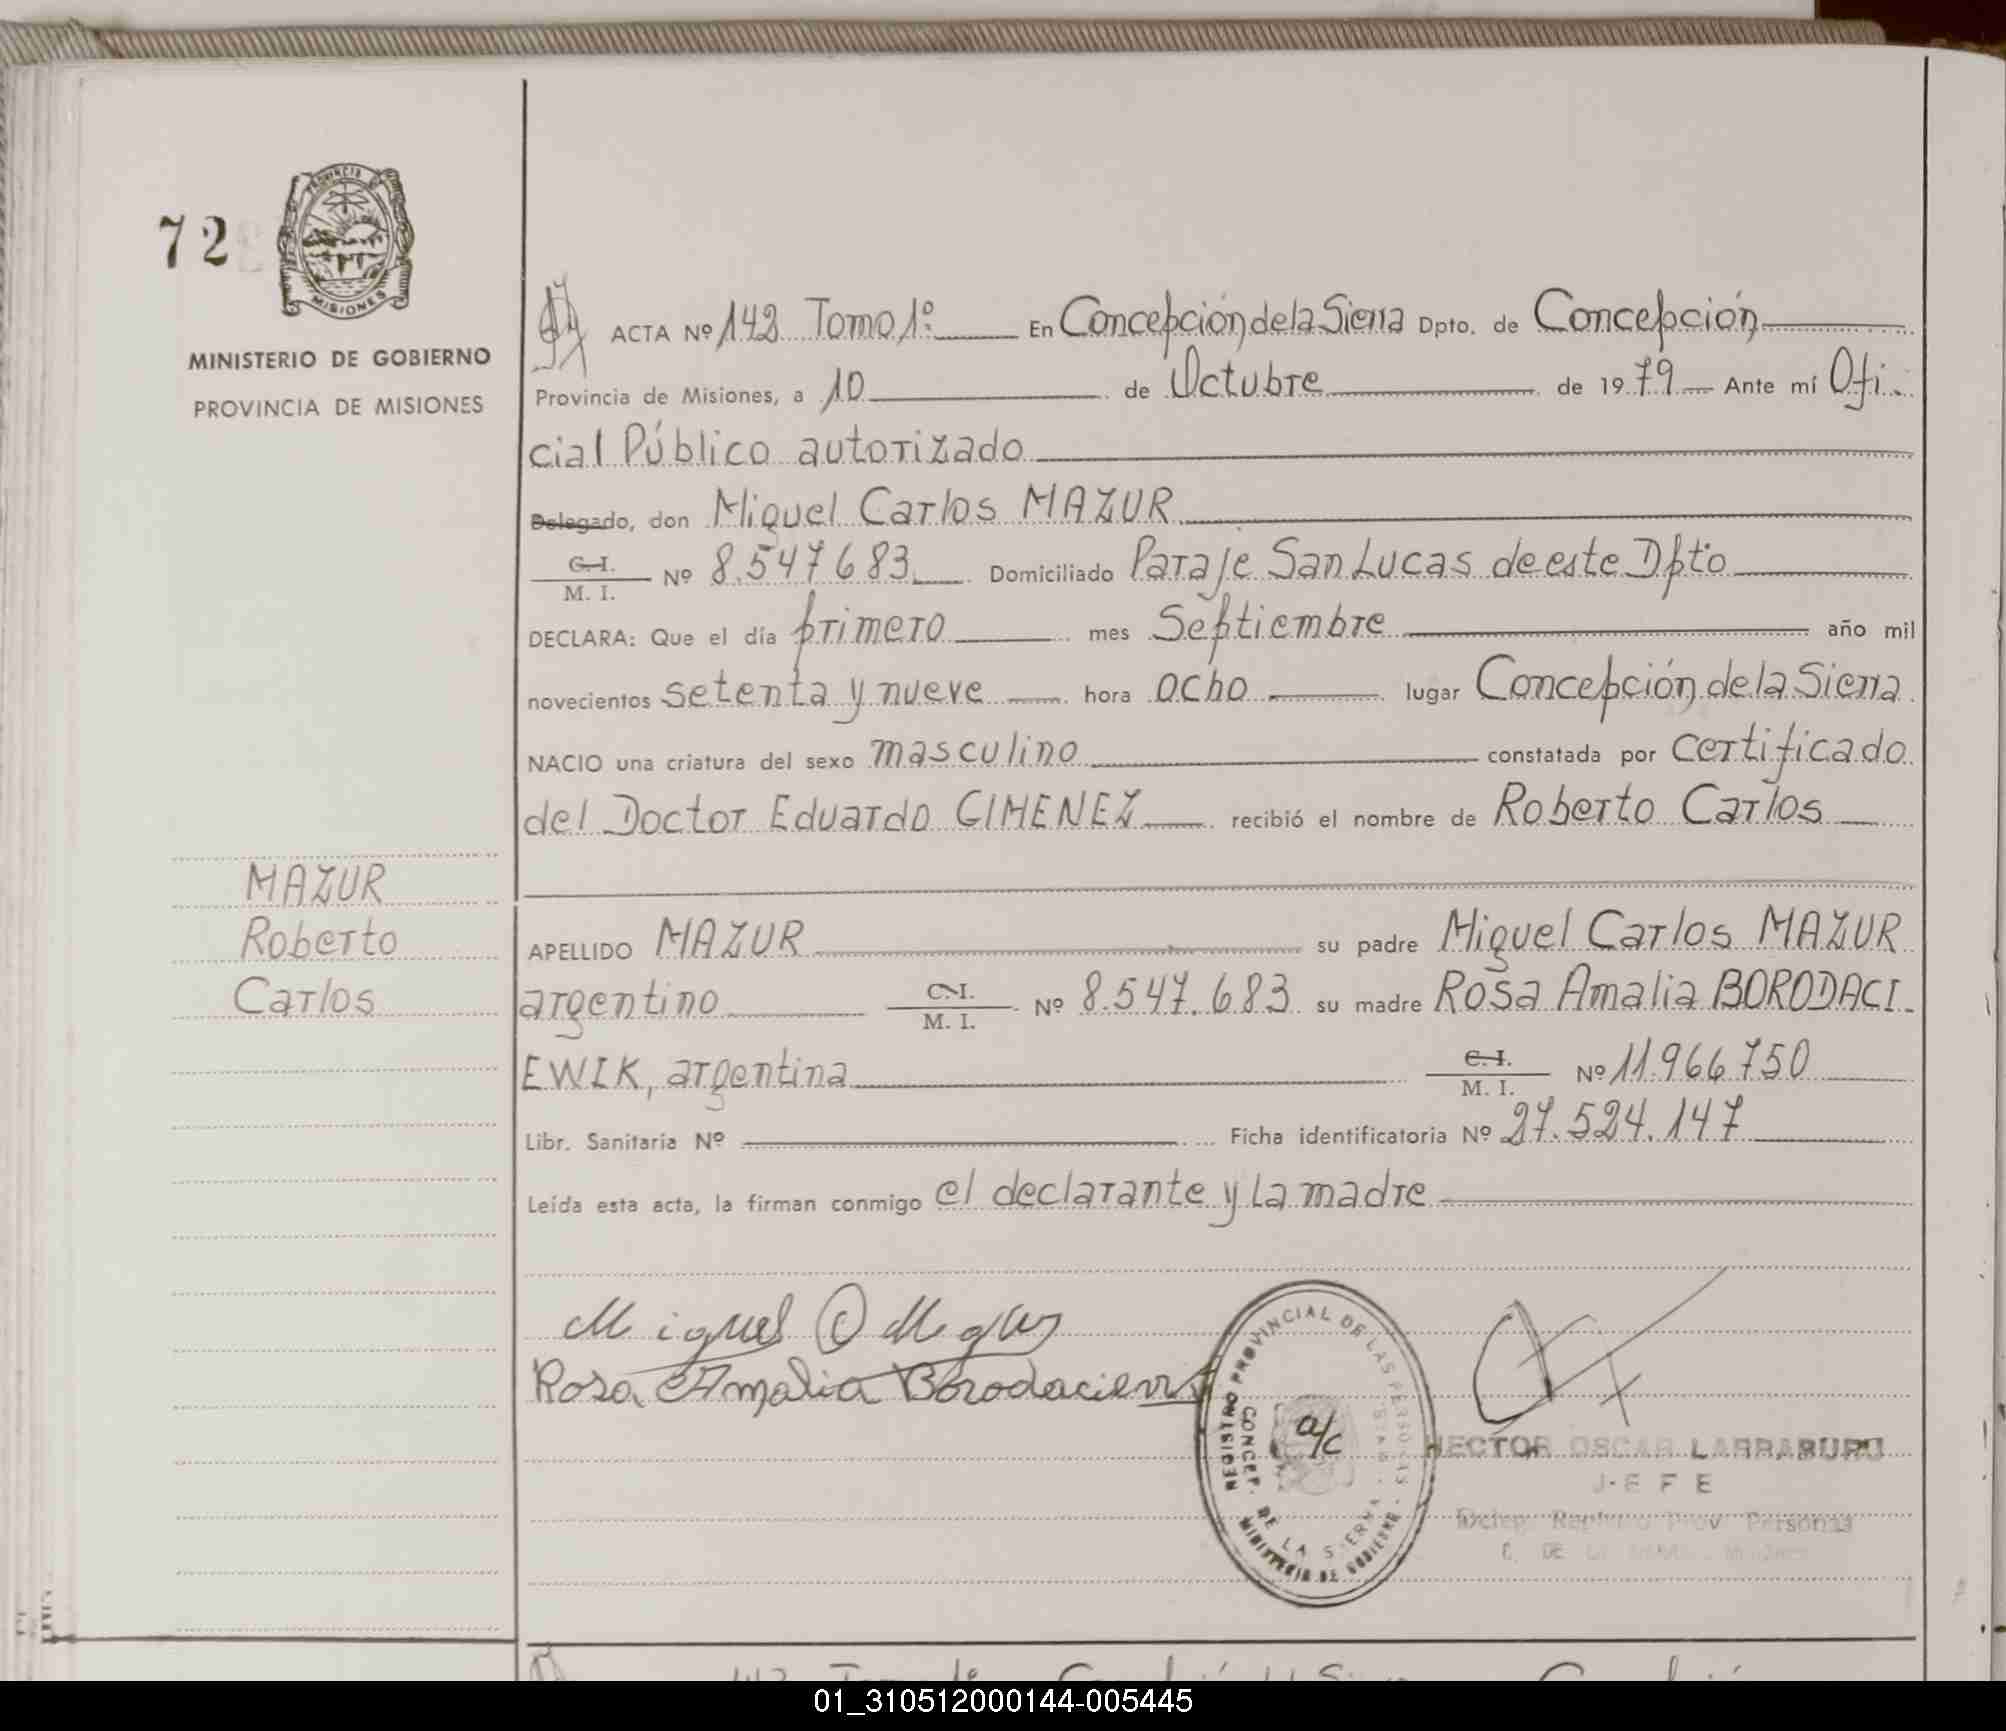 72
PROVINCIA DE
MISIONES
MINISTERIO DE GOBIERNO
PROVINCIA DE MISIONES
ACTA Nº 142 Tomo 1º. En Concepción de la Sierra Dpto. de Concepción
Provincia de Misiones, a 10 de Octubre de 1979 Ante mí Ofi-
cial Público autorizado
Delegado, don Miguel Carlos MAZUR
C. I.
M. I. Nº 8.547683 Domiciliado Paraje San Lucas de este Dpto
DECLARA: Que el día primero mes Septiembre año mil
novecientos setenta y nueve hora ocho lugar Concepción de la Sierra
NACIO una criatura del sexo masculino constatada por certificado
del Doctor Eduardo GIMENEZ recibió el nombre de Roberto Carlos
MAZUR
Roberto
Carlos
APELLIDO MAZUR su padre Miguel Carlos MAZUR
argentino C. I.
M. I. Nº 8.547.683 su madre Rosa Amalia BORODACI-
EWIK, argentina C. I.
M. I. Nº 11.966750
Libr. Sanitaria Nº Ficha identificatoria Nº 27.524.147
Leída esta acta, la firman conmigo el declarante y la madre
Miguel C
Rosa Amalia
REGISTRO PROVINCIAL DE LAS PERSONAS
CONCEP. DE LA SIERRA
MINISTERIO DE GOBIERNO
a/c
HECTOR OSCAR LARRABURU
JEFE
Deleg. Registro Prov. Personas
01_310512000144-005445